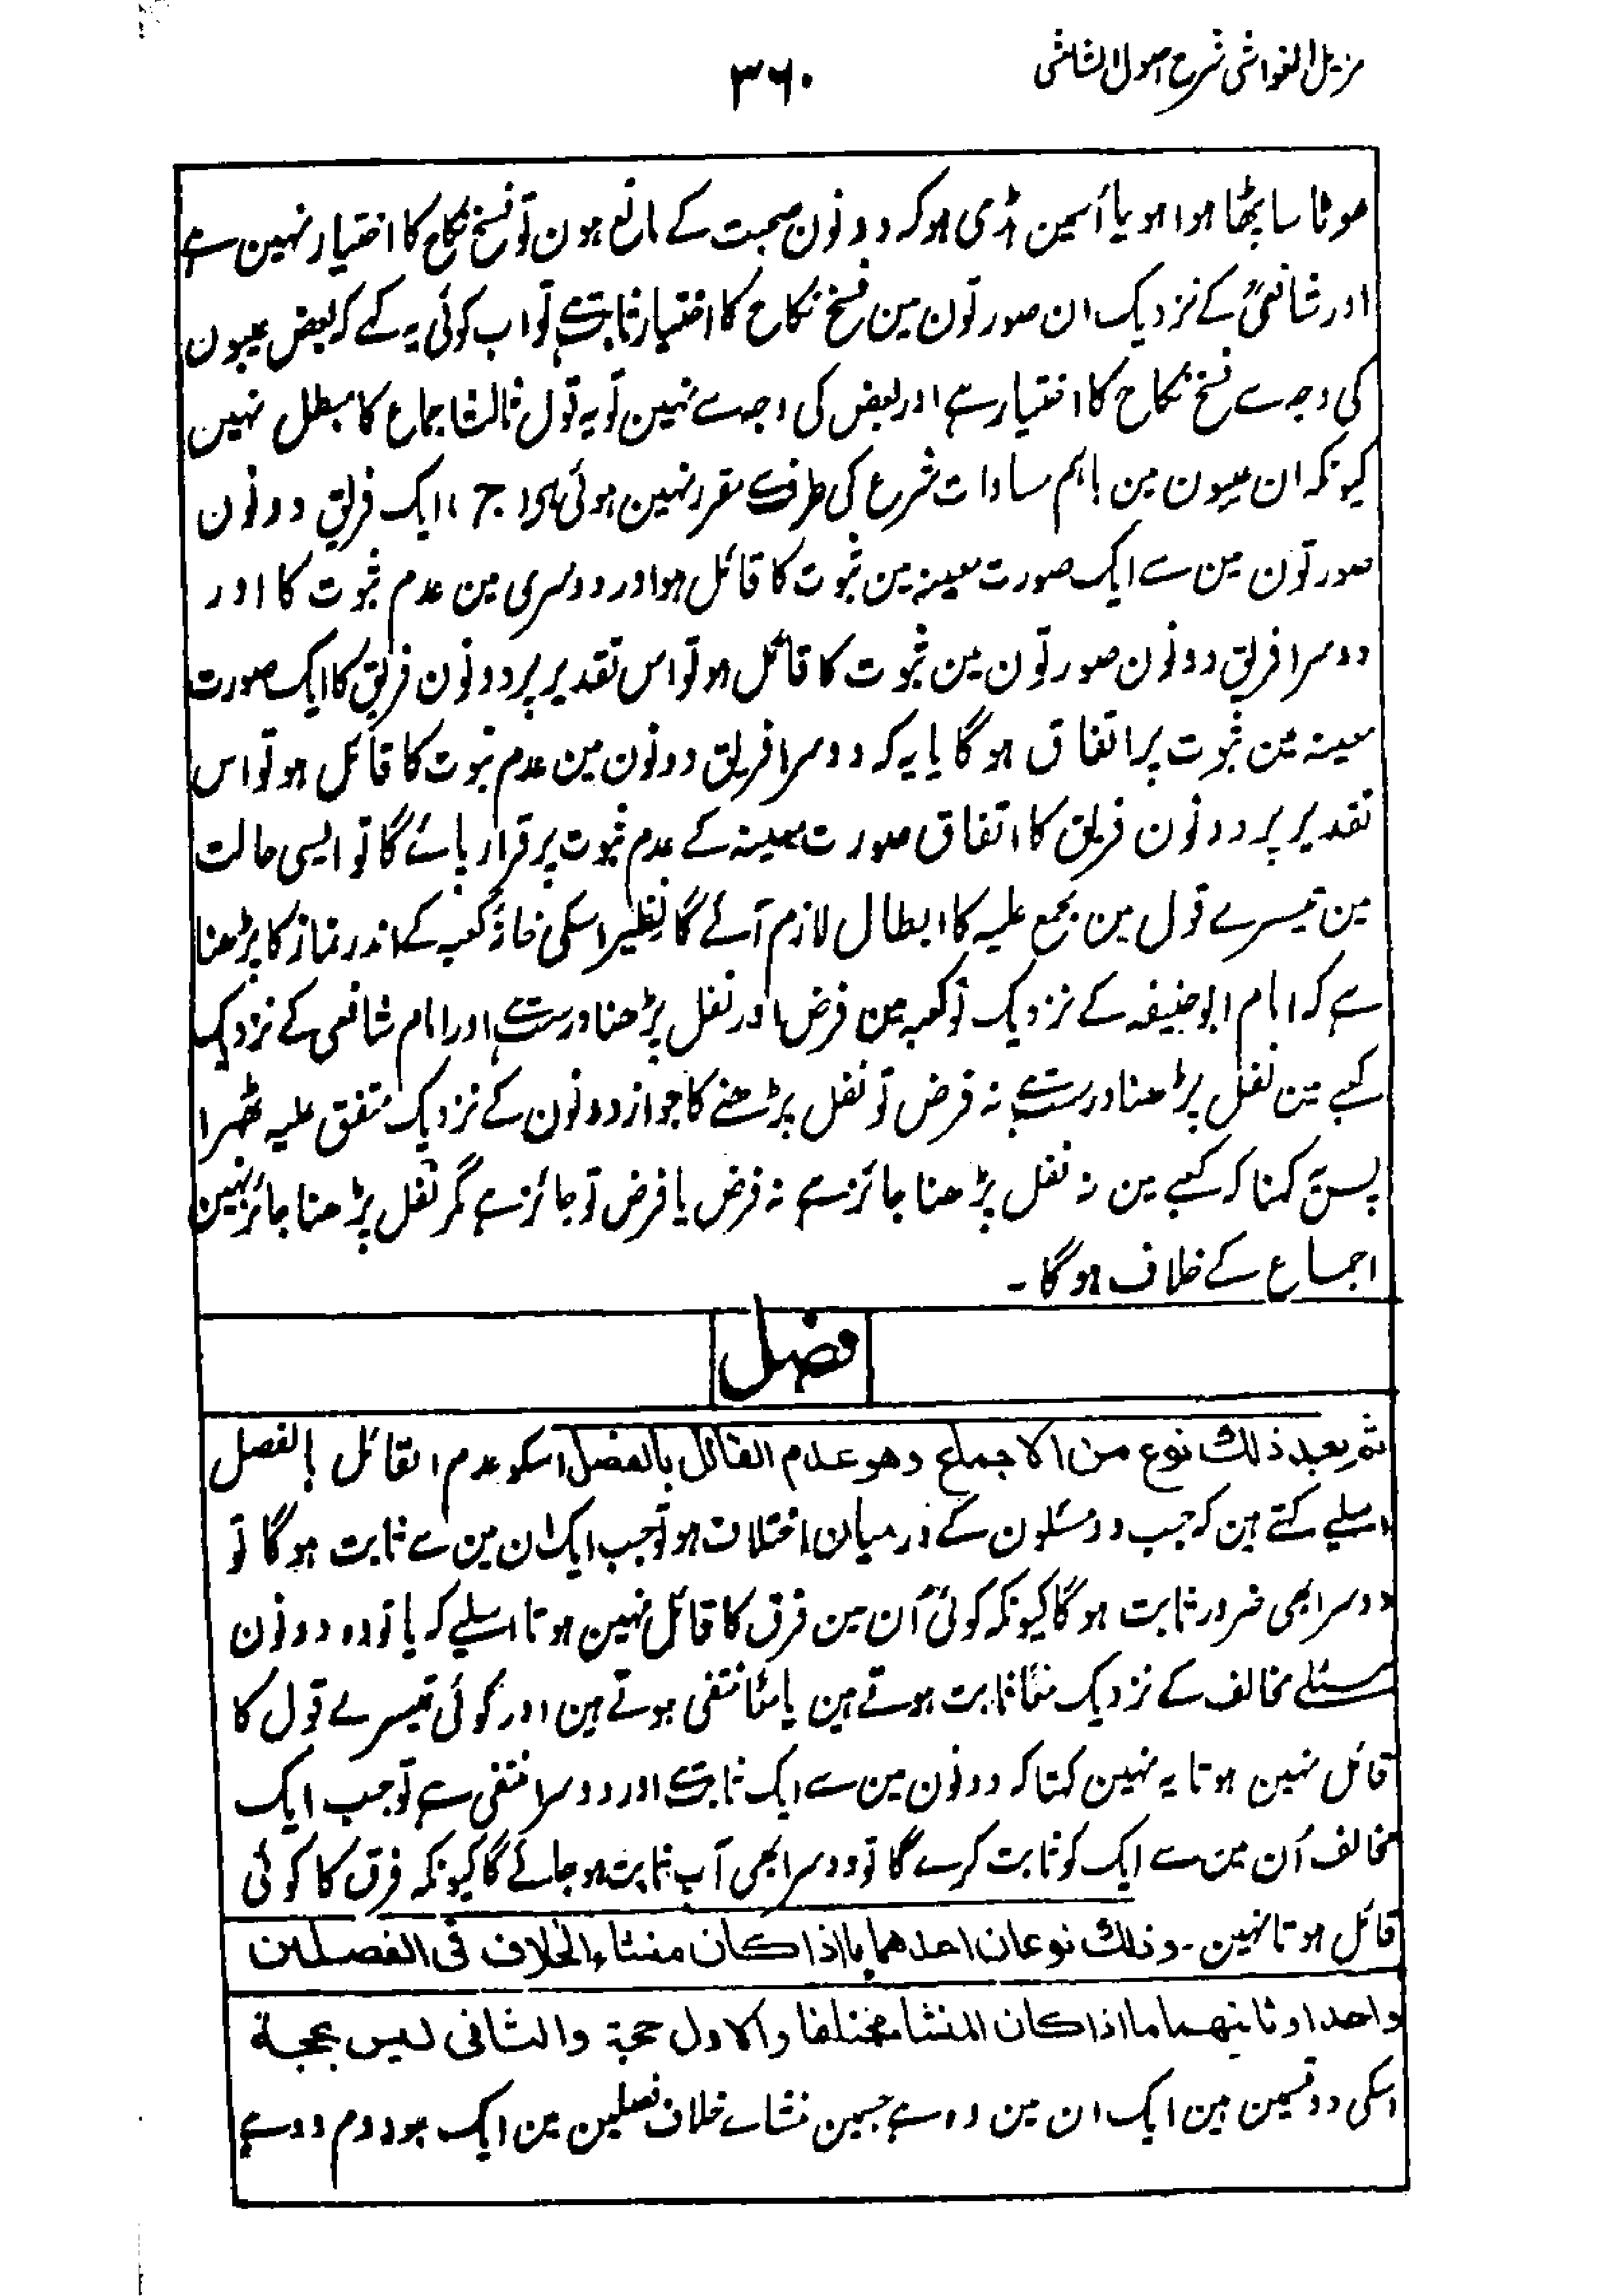 مزیل الغواشی شرح اصول الشاشی
۳۶۰
موٹا سا پٹھا ہوا ہو یا اُسمین ہڈی ہو کہ دونون صحبت کے مانع ہون تو فسخ نکاح کا اختیار نہین ہے
اور شافعیؒ کے نزدیک ان صورتون مین فسخ نکاح کا اختیار ثابت ہے تو اب کوئی یہ کہے کہ بعض عیبون
کی وجہ سے فسخ نکاح کا اختیار ہے اور بعض کی وجہ سے نہین تو یہ قول ثالث اجماع کا مبطل نہین
کیونکہ ان عیبون مین باہم مساوات شرع کی طرف سے مقرر نہین ہوئی ہے (ج) ایک فریق دونون
صورتون مین سے ایک صورت معینہ مین ثبوت کا قائل ہو اور دوسری مین عدم ثبوت کا اور
دوسرا فریق دونون صورتون مین ثبوت کا قائل ہو تو اس تقدیر پر دونون فریق کا ایک صورت
معینہ مین ثبوت پر اتفاق ہوگا یا یہ کہ دوسرا فریق دونون مین عدم ثبوت کا قائل ہو تو اس
تقدیر پر دونون فریق کا اتفاق صورت معینہ کے عدم ثبوت پر قرار پائے گا تو ایسی حالت
مین تیسرے قول مین مجمع علیہ کا ابطال لازم آئے گا نظیر اسکی خانۂ کعبہ کے اندر نماز کا پڑھنا
ہے کہ امام ابو حنیفہ کے نزدیک تو کعبہ مین فرض اور نفل پڑھنا درست ہے اور امام شافعی کے نزدیک
کعبے مین نفل پڑھنا درست ہے نہ فرض تو نفل پڑھنے کا جواز دونون کے نزدیک متفق علیہ ٹھہرا
پس یہ کہنا کہ کعبے مین نہ نفل پڑھنا جائز ہے نہ فرض یا فرض تو جائز ہے مگر نفل پڑھنا جائز نہین
اجماع کے خلاف ہوگا ۔
فصل
ثم بعد ذلك نوع من الاجماع وهو عدم القائل بالفصل اسکو عدم القائل بالفصل
اسلیے کہتے ہین کہ جب دو مسئلون کے درمیان اختلاف ہو تو جب ایک ان مین سے ثابت ہوگا تو
دوسرا بھی ضرور ثابت ہوگا کیونکہ کوئی اُن مین فرق کا قائل نہین ہوتا اسلیے کہ یا تو وہ دونون
مسئلے مخالف کے نزدیک معًا ثابت ہوتے ہین یا معًا منتفی ہوتے ہین اور کوئی تیسرے قول کا
قائل نہین ہوتا یہ نہین کہتا کہ دونون مین سے ایک ثابت ہے اور دوسرا منتفی ہے تو جب ایک
مخالف اُن مین سے ایک کو ثابت کرے گا تو دوسرا بھی آپ ثابت ہو جائے گا کیونکہ فرق کا کوئی
قائل ہوتا نہین ۔ وذلك نوعان احدهما ما اذا كان منشاء الخلاف فى الفصلين
واحدا وثانيهما ما اذا كان المنشاء مختلفا والاول حجة والثانى ليس بحجة
اسکی دو قسمین ہین ایک ان مین وہ ہے جسمین منشاے خلاف فصلین مین ایک ہو دوم وہ ہے